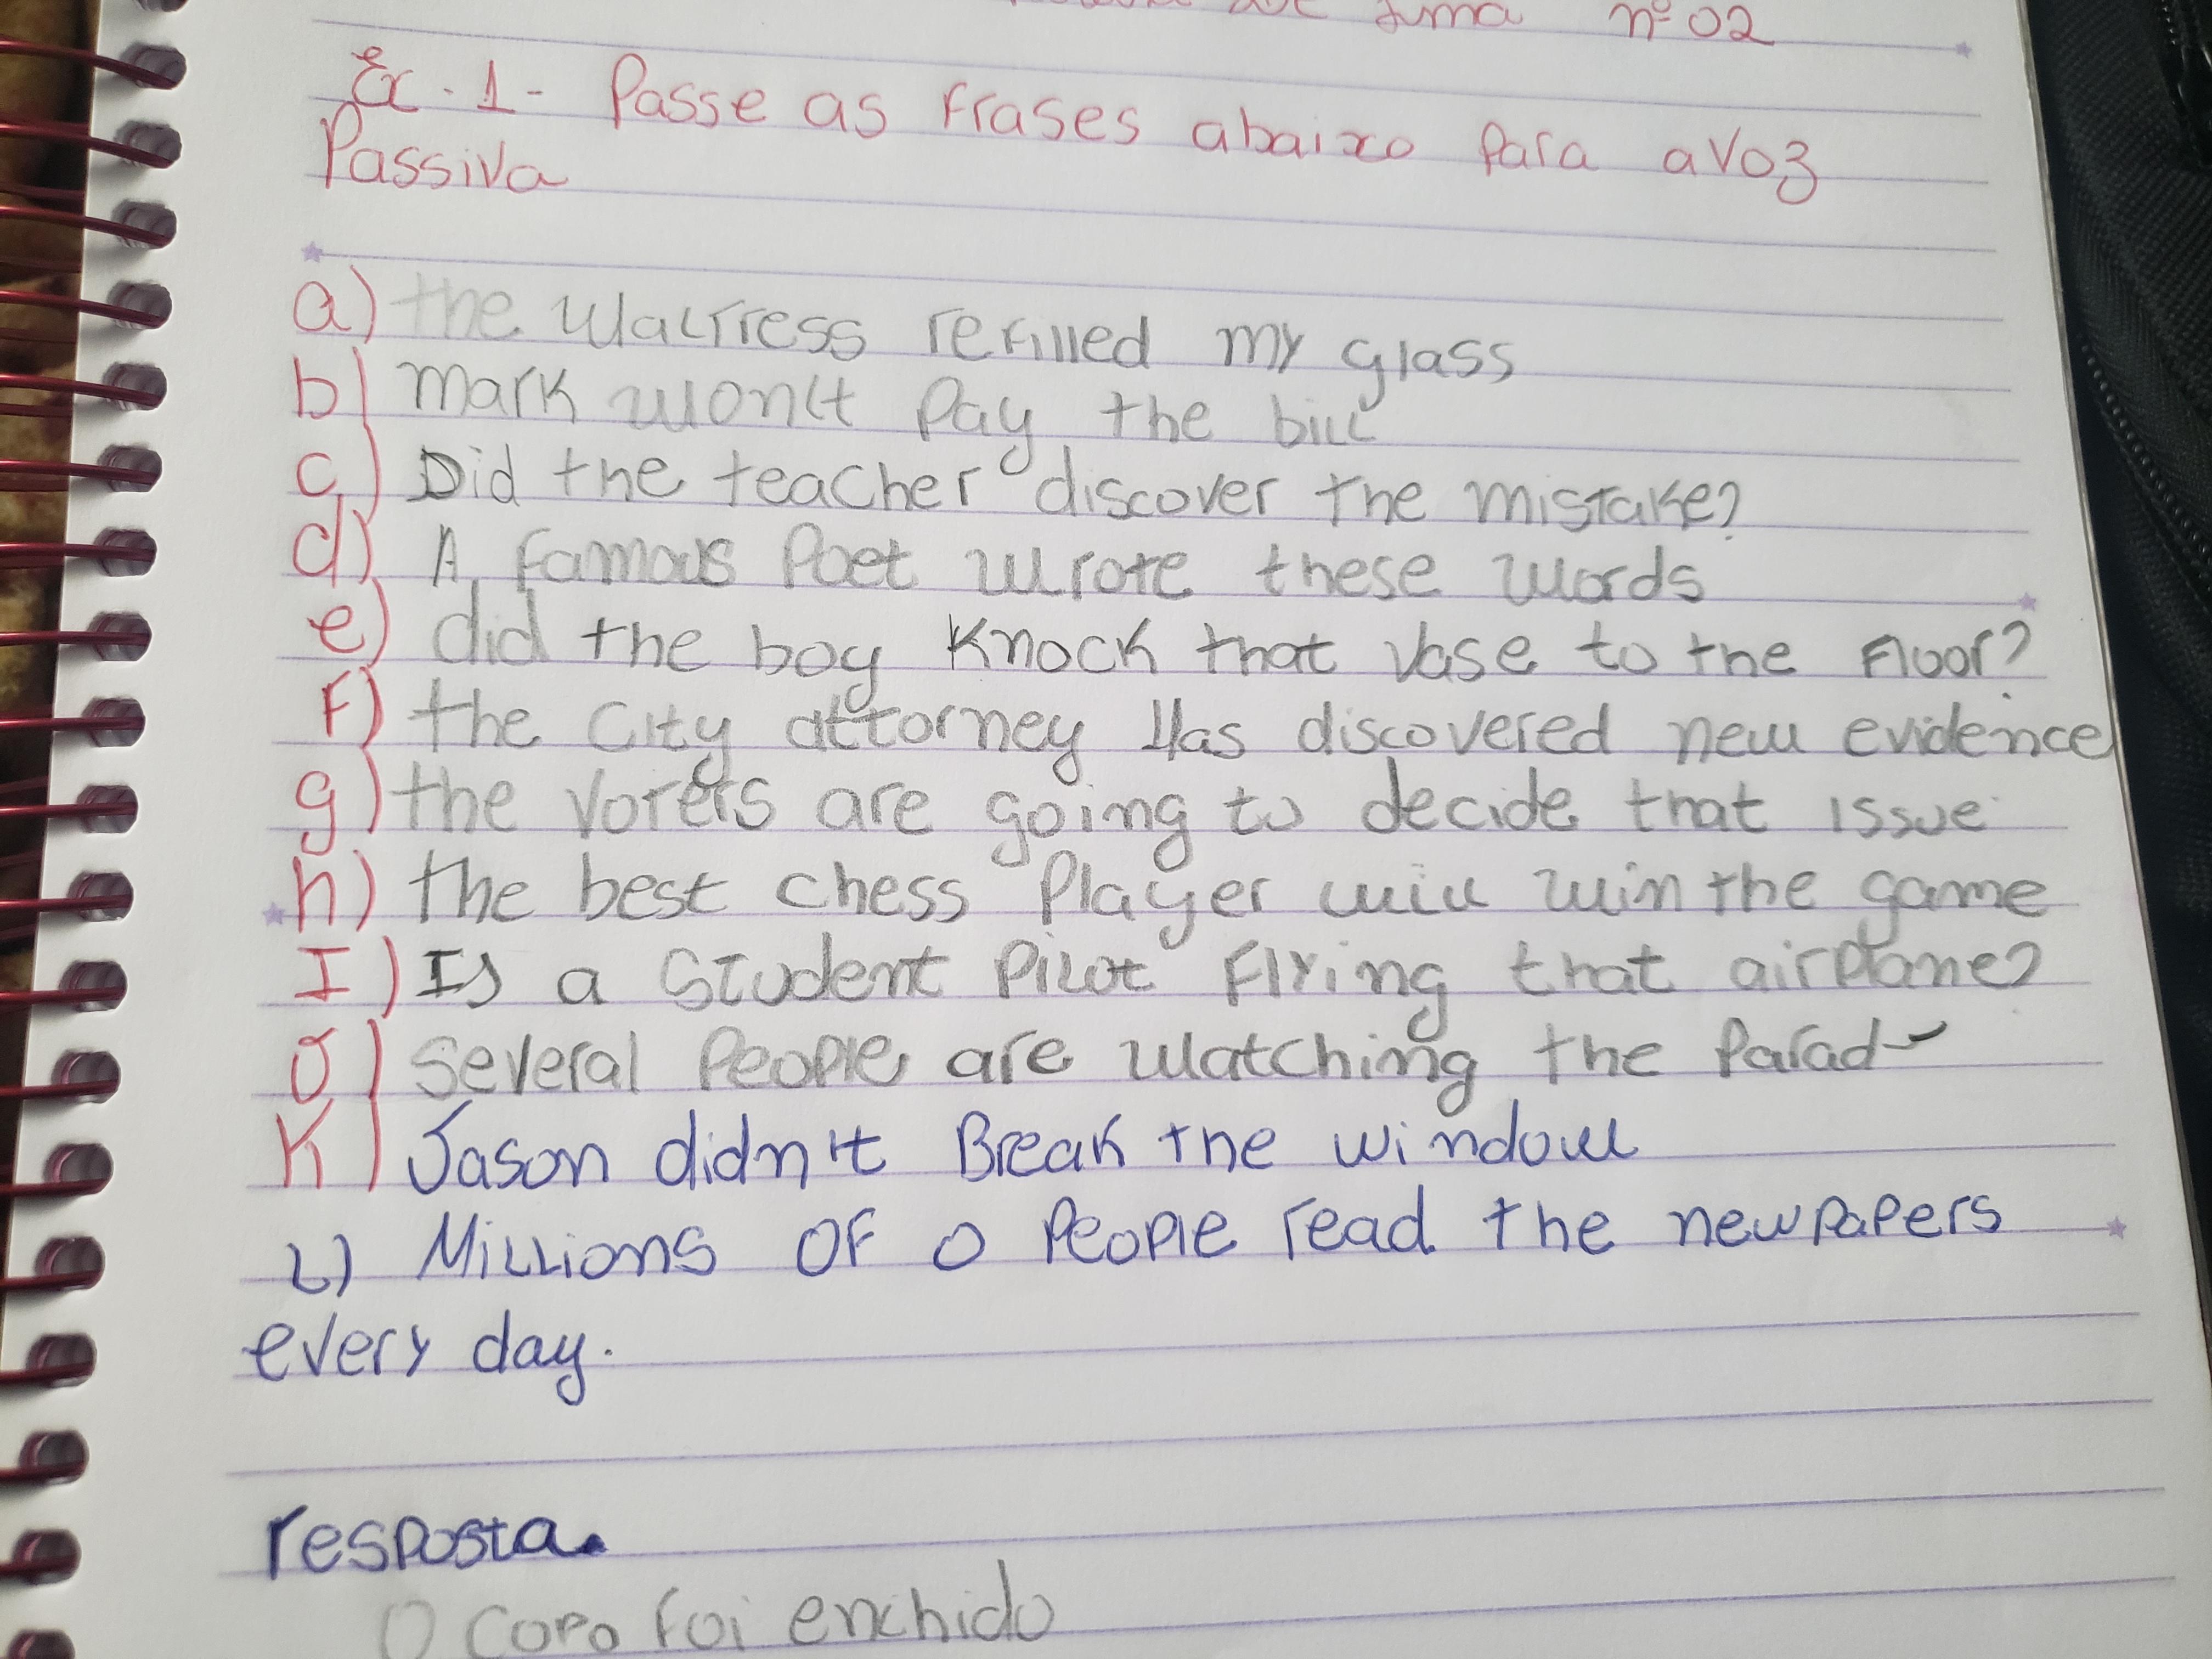 nº 02
Ex. 1 - Passe as frases abaixo para a voz
Passiva
a) the waitress refilled my glass
b) Mark won't Pay the bill
c) Did the teacher discover the mistake?
d) A famous Poet wrote these words
e) did the boy Knock that vase to the floor?
F) the city attorney Has discovered new evidence
g) the voters are going to decide that issue
h) the best chess Player will win the game
I) Is a student Pilot Flying that airplane?
J) Several People are watching the Parad
K) Jason didn't Break the window
L) Millions OF O People read the newpapers
every day.
resposta.
O copo foi enchido